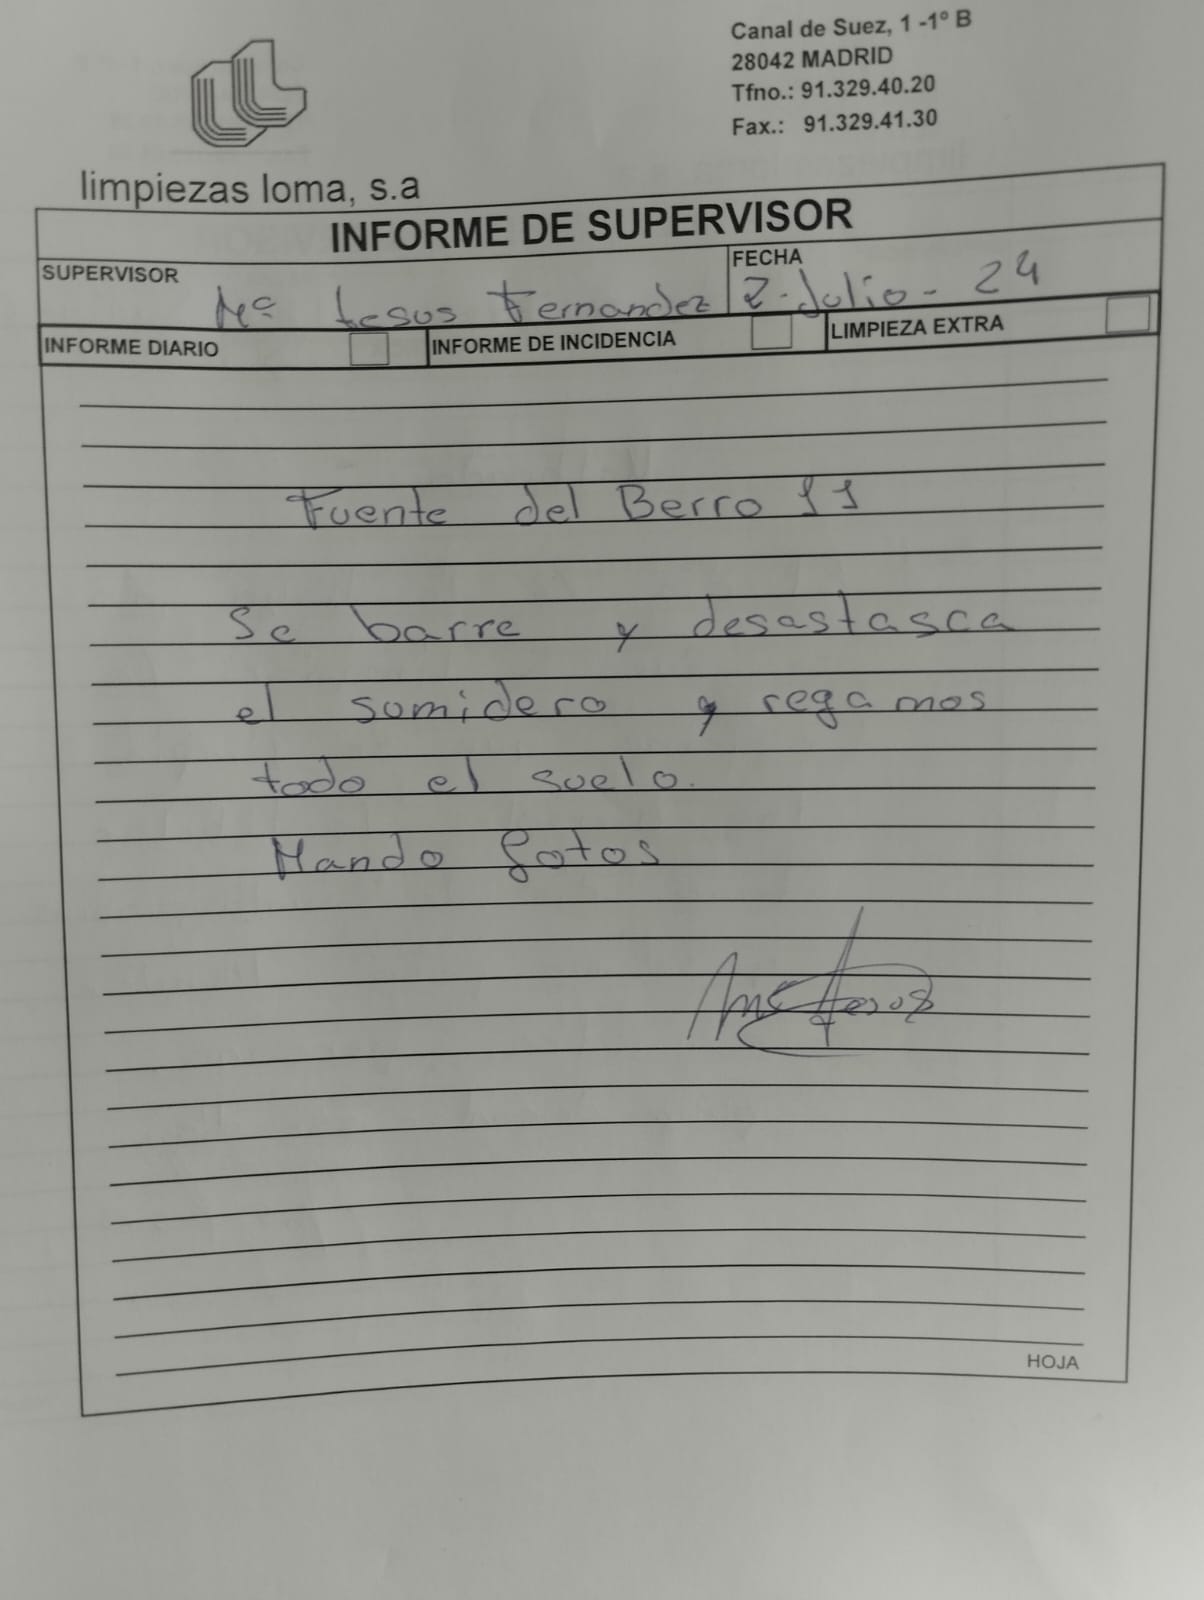 Canal de Suez, 1 -1º B
28042 MADRID
Tfno.: 91.329.40.20
Fax.: 91.329.41.30
limpiezas loma, s.a
INFORME DE SUPERVISOR
SUPERVISOR Mª Jesus Fernandez FECHA 2-Julio-24
INFORME DIARIO INFORME DE INCIDENCIA LIMPIEZA EXTRA
Fuente del Berro 11
Se barre y desastasca
el sumidero y regamos
todo el suelo.
Mando fotos
Mª Jesus
HOJA